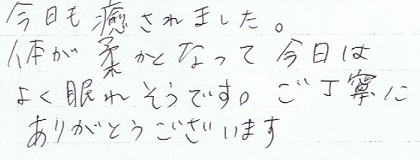 今日も癒されました。
体が柔かとなって今日は
よく眠れそうです。ご丁寧に
ありがとうございます